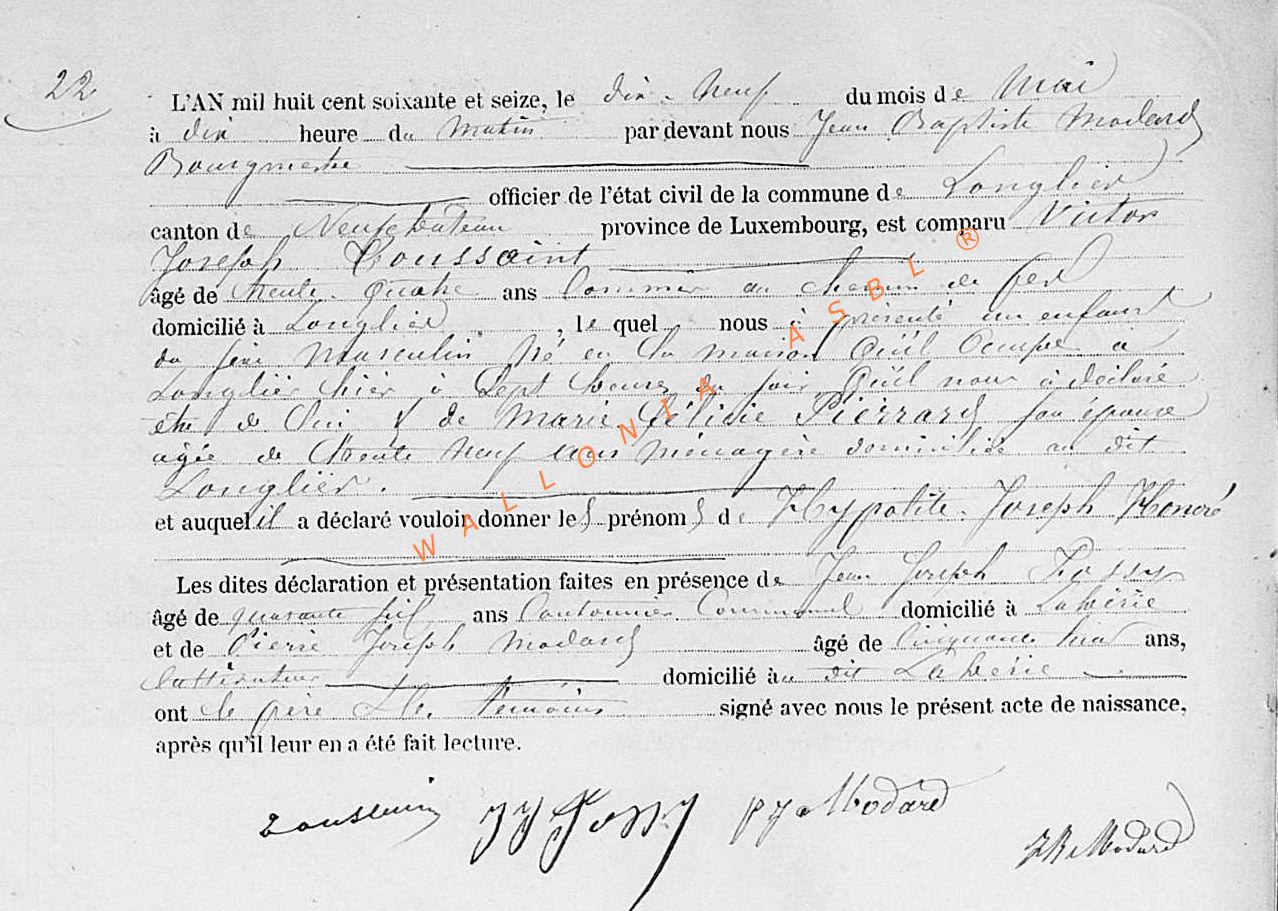 22
L'AN mil huit cent soixante et seize, le dix-Neuf du mois de Mai
à dix heure du Matin par devant nous Jean Baptiste Modard
Bourgmestre
officier de l'état civil de la commune de Longlier
canton de Neufchâteau province de Luxembourg, est comparu Victor
Joseph Toussaint
âgé de trente-Quatre ans Commis au chemin de fer
domicilié à Longlier, le quel nous à présenté un enfant
du sexe Masculin Né en la maison Qu'il Occupe à
Longlier hier à Sept heures du soir Qu'il nous à déclaré
être de lui & de Marie Félicie Pierrard son épouse
agée de trente Neuf ans Ménagère domiciliée au dit
Longlier.
et auquel il a déclaré vouloir donner les prénoms de Hypolite-Joseph Honoré
Les dites déclaration et présentation faites en présence de Jean Joseph
âgé de quarante ans Cantonnier Communal domicilié à Laherie
et de Pierre Joseph Modard âgé de Cinquante ans,
Cultivateur domicilié au dit Laherie
ont le père & les témoins signé avec nous le présent acte de naissance,
après qu'il leur en a été fait lecture.
Toussaint PJ Modard
JB Modard
WALLONIA ASBL ®